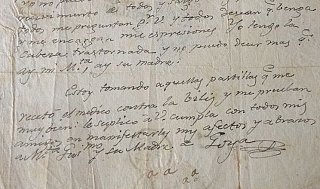 y no pue
de todos y
todos me preguntan pr. V. y todos dicen qe. benga
y me encargan mil espresiones yo tengo la
Cabeza trastornada y no puedo decir mas qe.
ay mi Ma. y ay su madre.
Estoy tomando aquellas pastillas qe. me
recetó el medico contra la bilis y me prueban
muy bien: le suplico a V. cumpla con todos mis
amigos en manifestarles mis afectos y abrazos
a Ma. y su Madre. Goya